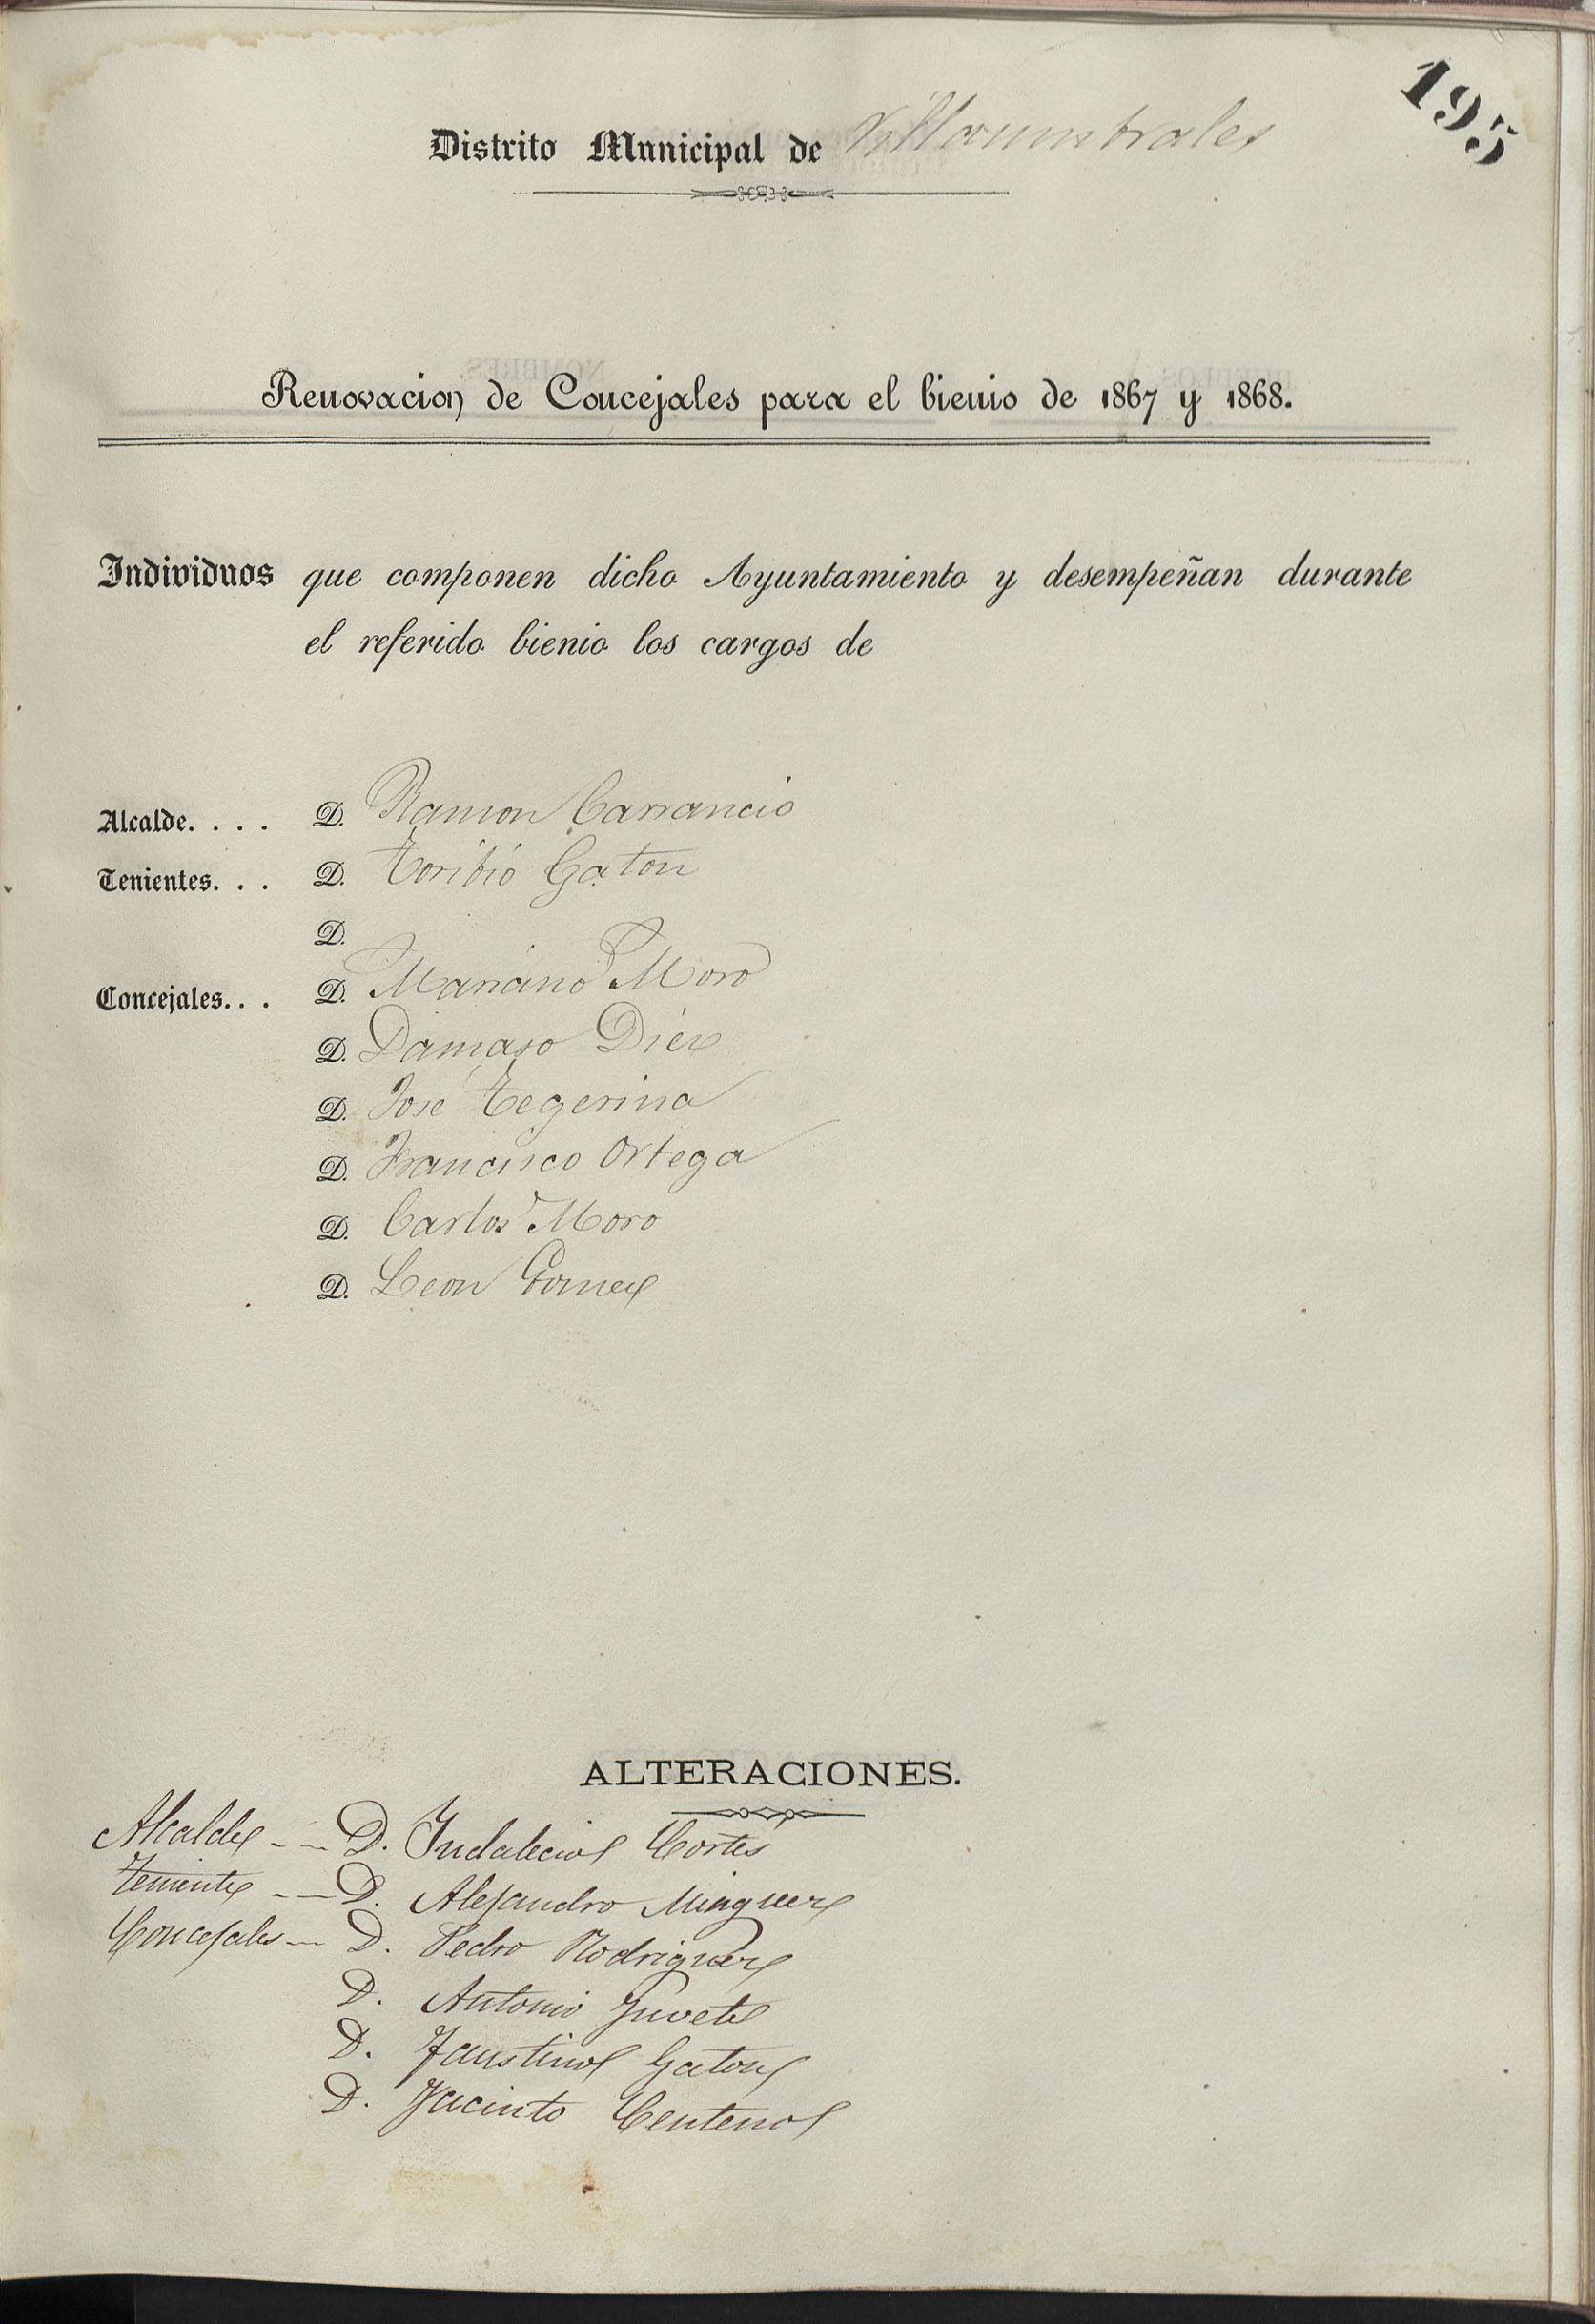 195
Distrito Municipal de Villaumbrales
Renovacion de Concejales para el bienio de 1867 y 1868.
Individuos que componen dicho Ayuntamiento y desempeñan durante
el referido bienio los cargos de
Alcalde. . . . D. Ramon Carrancio
Tenientes. . . D. Toribio Gaton
D.
Concejales. . . D. Mariano Moro
D. Damaso Diez
D. José Tegerina
D. Francisco Ortega
D. Carlos Moro
D. Leon Gomez
ALTERACIONES.
Alcalde - - D. Indalecio Cortes
Teniente - - D. Alejandro Minguez
Concejales - D. Pedro Rodriguez
D. Antonio
D. Faustino Gaton
D. Jacinto Centeno